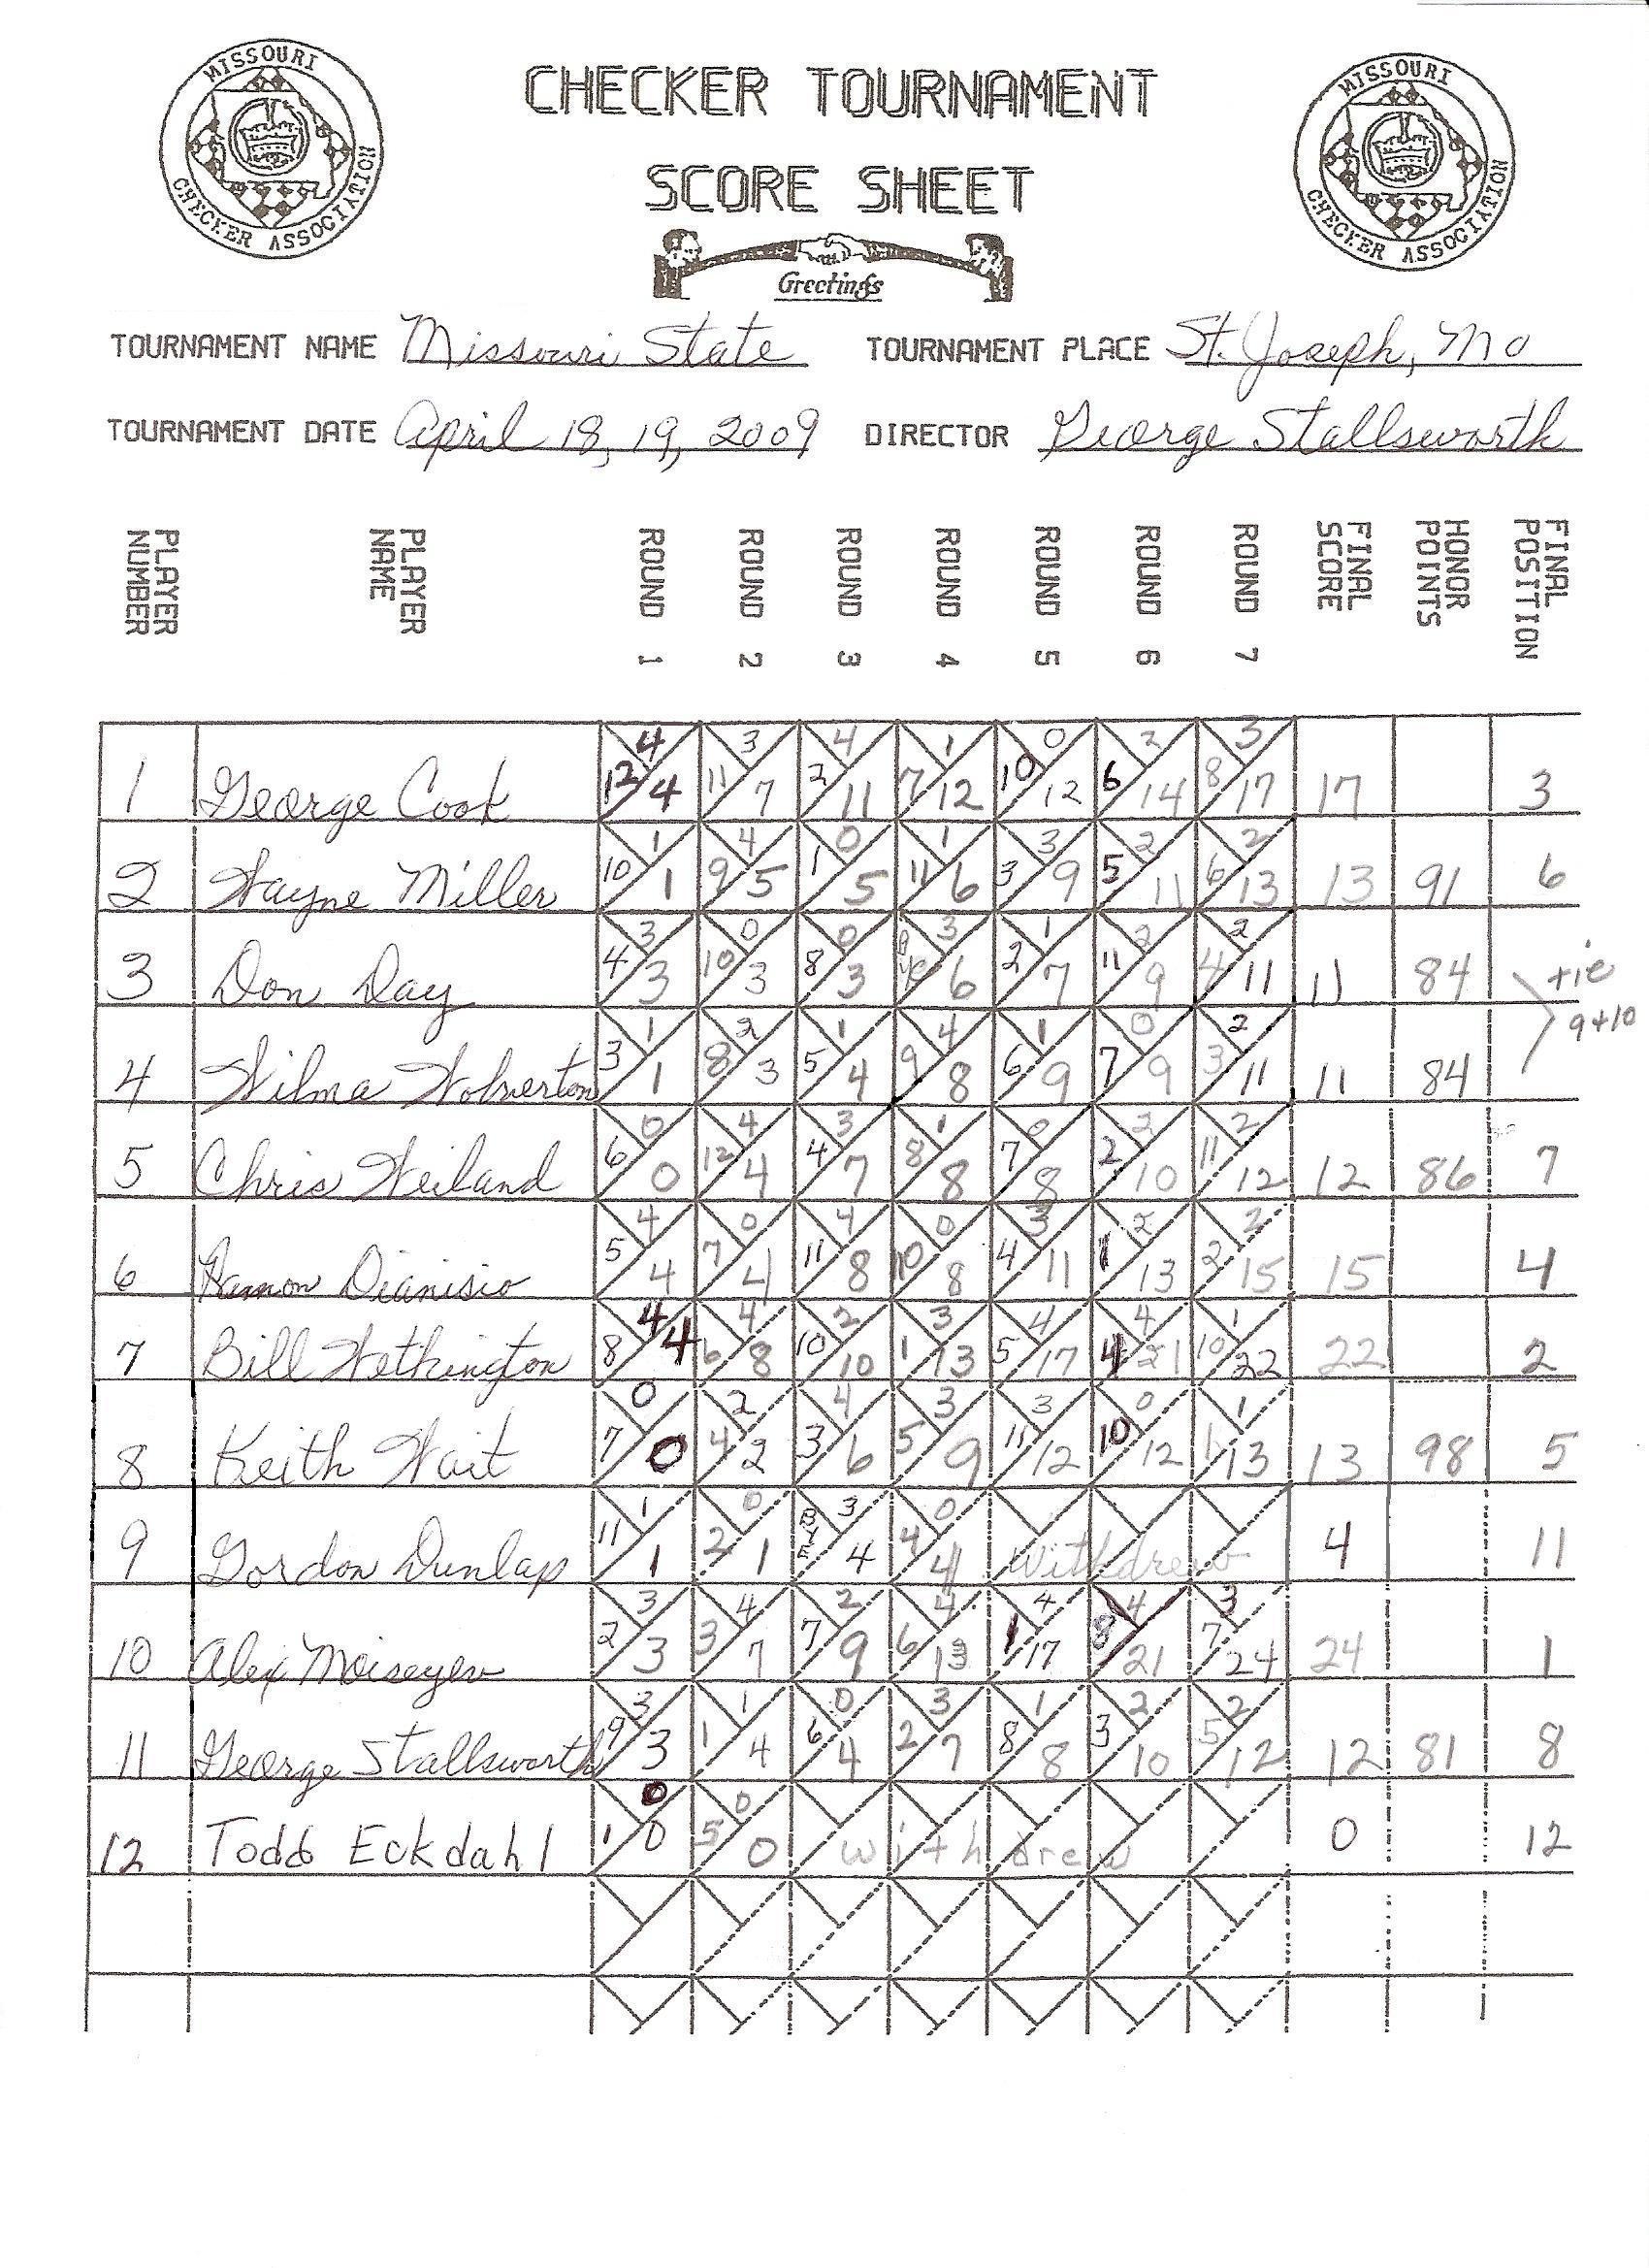 MISSOURI CHECKER ASSOCIATION
CHECKER TOURNAMENT
MISSOURI CHECKER ASSOCIATION
SCORE SHEET
Greetings
TOURNAMENT NAME Missouri State TOURNAMENT PLACE St. Joseph, Mo
TOURNAMENT DATE April 18, 19, 2009 DIRECTOR George Stallsworth
PLAYER NUMBER PLAYER NAME ROUND 1 ROUND 2 ROUND 3 ROUND 4 ROUND 5 ROUND 6 ROUND 7 FINAL SCORE HONOR POINTS FINAL POSITION
4 3 4 1 0 2 3
1 George Cook 12 4 11 7 2 11 7 12 10 12 6 14 8 17 17 3
1 4 0 1 3 2 2
2 Wayne Miller 10 1 9 5 1 5 11 6 3 9 5 11 6 13 13 91 6
3 0 0 3 1 2 2
3 Don Day 4 3 10 3 8 3 Bye 6 2 7 11 9 4 11 11 84 tie
9+10
1 2 1 4 1 0 2
4 Wilma Wolverton 3 1 8 3 5 4 9 8 6 9 7 9 3 11 11 84
0 4 3 1 0 2 2
5 Chris Weiland 6 0 12 4 4 7 8 8 7 8 2 10 11 12 12 86 7
4 0 4 0 3 2 2
6 Ramon Dianisio 5 4 7 4 11 8 10 8 4 11 1 13 2 15 15 4
4 4 2 3 4 4 1
7 Bill Wethington 8 4 6 8 10 10 1 13 5 17 4 21 10 22 22 2
0 2 4 3 3 0 1
8 Keith Wait 7 0 4 2 3 6 5 9 11 12 10 12 1 13 13 98 5
1 0 3 0
9 Gordon Dunlap 11 1 2 1 BYE 4 4 4 Withdrew 4 11
3 4 2 4 4 4 3
10 Alex Moiseyev 2 3 3 7 7 9 6 13 1 17 8 21 7 24 24 1
3 1 0 3 1 2 2
11 George Stallsworth 9 3 1 4 6 4 2 7 8 8 3 10 5 12 12 81 8
0 0
12 Todd Eckdahl 1 0 5 0 withdrew 0 12